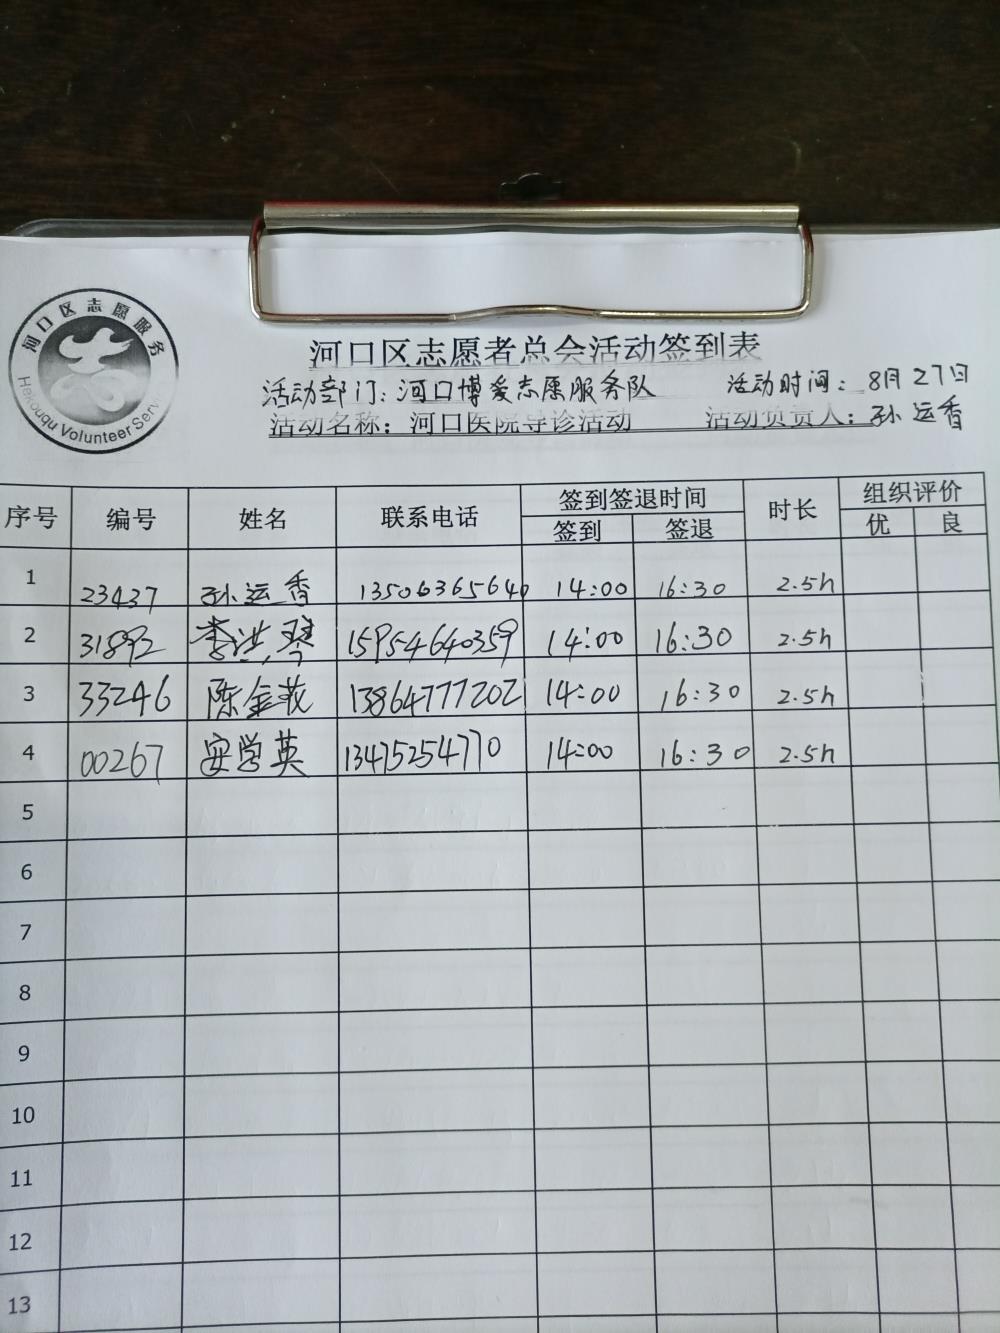 河口区志愿服务
Hekouqu Volunteer Serv
河口区志愿者总会活动签到表
活动部门：河口博爱志愿服务队 活动时间：8月27日
活动名称：河口医院导诊活动 活动负责人：孙运香
序号 编号 姓名 联系电话 签到签退时间 时长 组织评价
签到 签退 优 良
1 23437 孙运香 13506365640 14:00 16:30 2.5h
2 31892 李洪琴 15954640359 14:00 16:30 2.5h
3 33246 陈金 13864777202 14:00 16:30 2.5h
4 00267 安学英 13475254770 14:00 16:30 2.5h
5
6
7
8
9
10
11
12
13